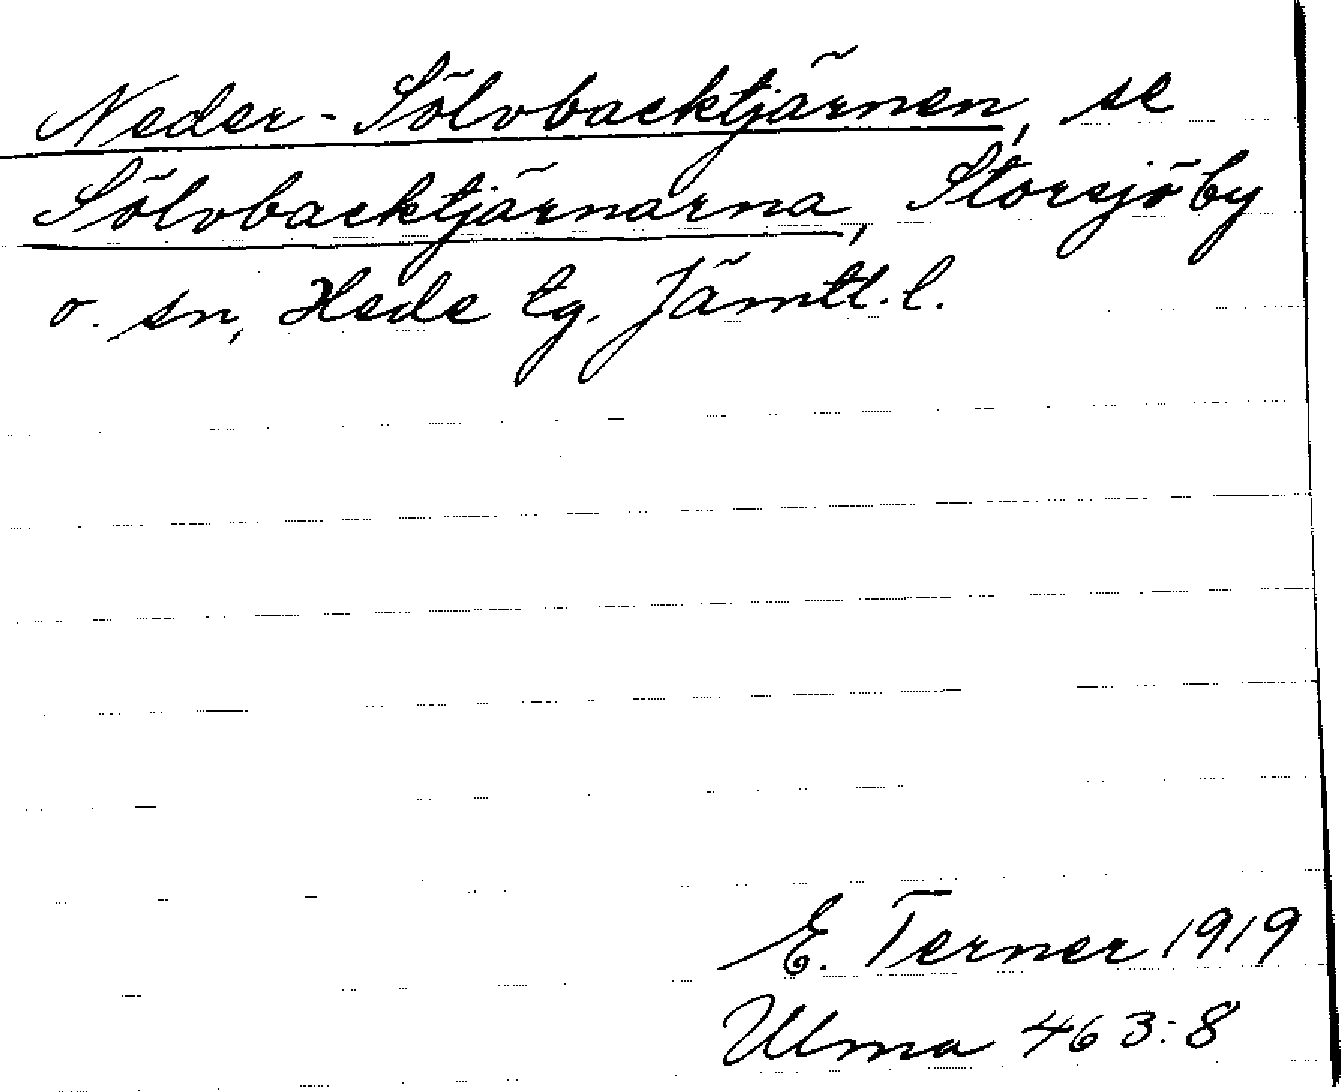 Neder-Sölvbacktjärnen, se
Sölvbacktjärnarna, Storsjö by
o. sn, Hede tg. Jämtl. l.
E. Terner 1919
Ulma 463:8